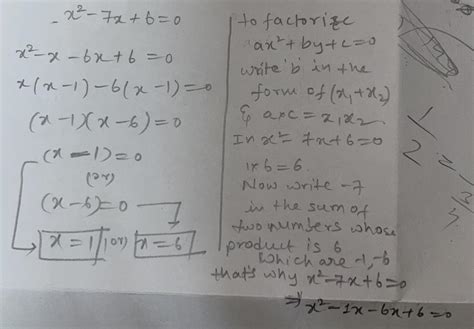 x²-7x+6=0
x²-x-6x+6=0
x(x-1)-6(x-1)=0
(x-1)(x-6)=0
(x-1)=0
(or)
(x-6)=0
x=1 (or) x=6
to factorize
ax²+by+c=0
write 'b' in the
form of (x₁+x₂)
& a×c = x₁x₂
In x²-7x+6=0
1×6=6
Now write -7
in the sum of
two numbers whose
product is 6
Which are -1,-6
that's why x²-7x+6=0
⇒ x²-1x-6x+6=0
1/2